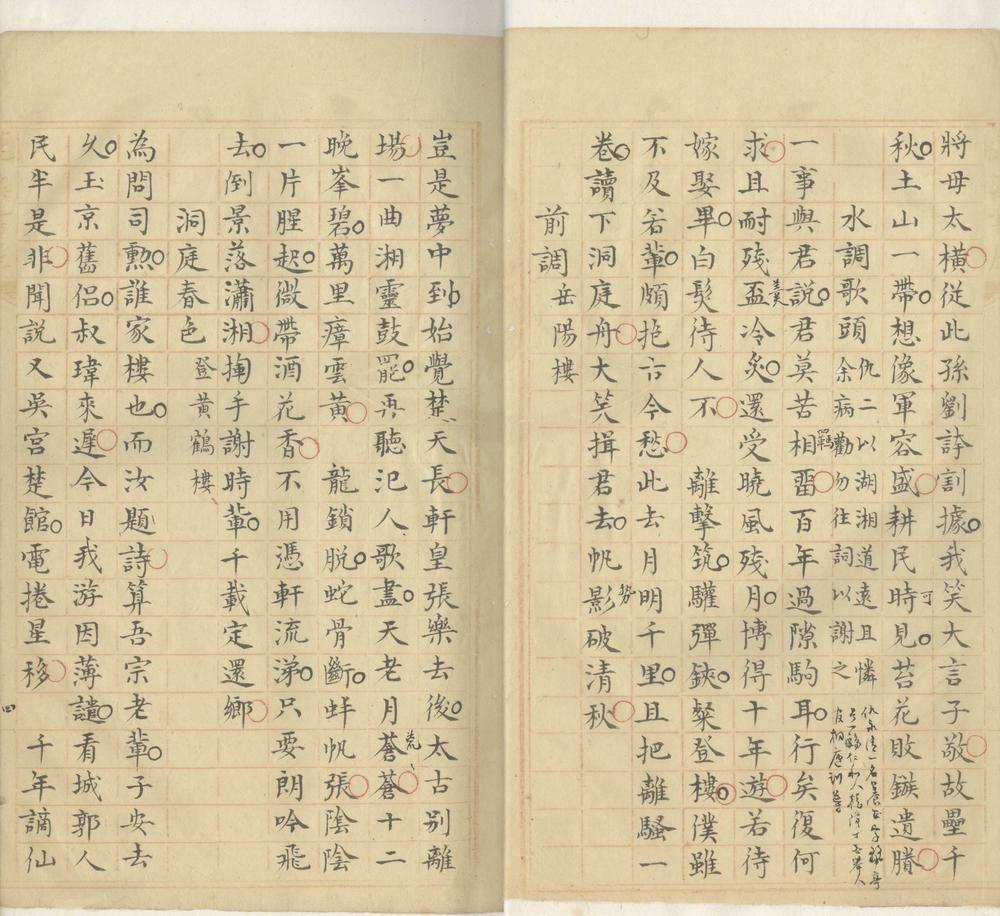 將毋太橫從此孫劉誇割據我笑大言子敬故壘千
秋土山一帶想像軍容盛耕民時見苔花敗鏃遺賸
水調歌頭
仇二以湖湘道遠且憐
余病勸勿往詞以謝之
一事與君說君莫苦相羈留百年過隙駒耳行矣復何
求且耐殘羹盃冷炙還受曉風殘月博得十年遊若待
嫁娶畢白髮待人不 離擊筑驩彈鋏粲登樓僕雖
不及若輩頗抱古今愁此去月明千里且把離騷一
卷讀下洞庭舟大笑揖君去帆勢影破清秋
前調岳陽樓
豈是夢中到始覺楚天長軒皇張樂去後太古別離
場一曲湘靈鼓罷再聽汜人歌盡天老月荒蒼蒼十二
晚峯碧萬里瘴雲黃 龍鎖脫蛇骨斷蚌帆張陰陰
一片腥起微帶酒花香不用憑軒流涕只要朗吟飛
去倒景落瀟湘掬手謝時輩千載定還鄉
洞庭春色登黃鶴樓
為問司勲誰家樓也而汝題詩算吾宗老輩子安去
久玉京舊侶叔瑋來遲今日我游因薄譴看城郭人
民半是非聞說又吳宮楚館電捲星移 千年謫仙
四